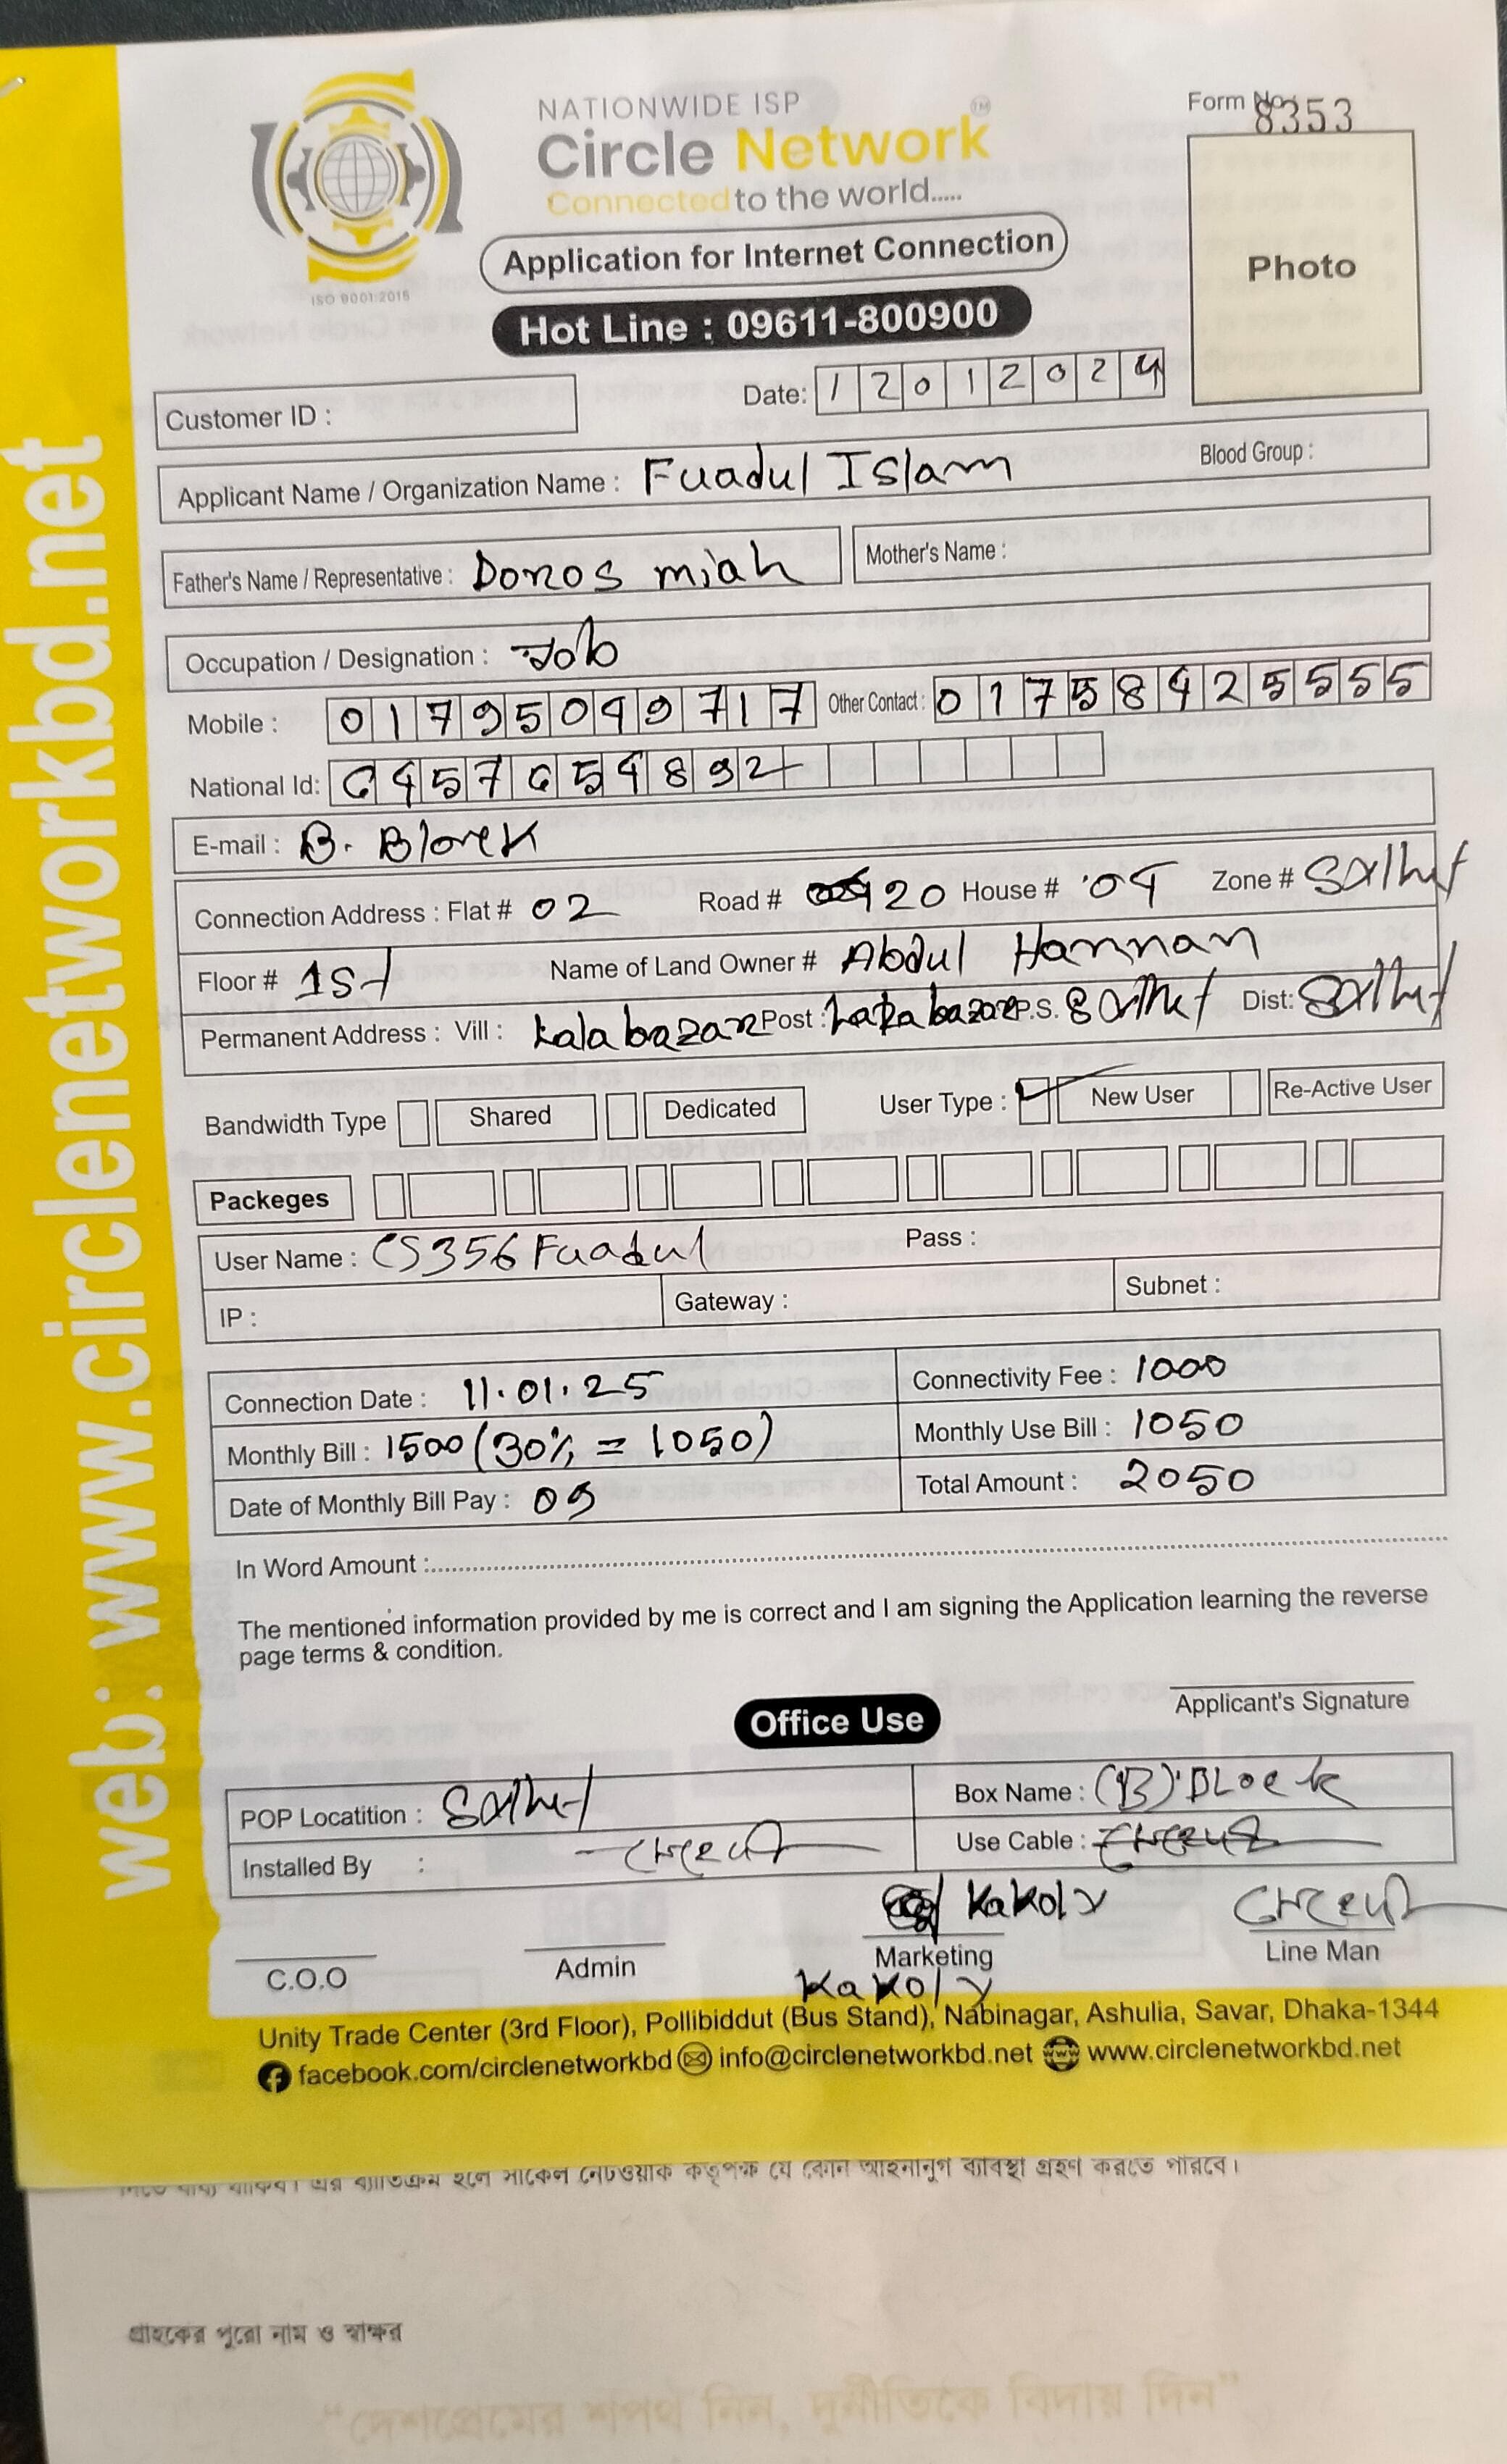 NATIONWIDE ISP
Circle Network TM
Connected to the world.....
ISO 9001:2015
Form No. 8353
Photo
Application for Internet Connection
Hot Line : 09611-800900
Customer ID :
Date: 12012024
Applicant Name / Organization Name : Fuadul Islam Blood Group :
Father's Name / Representative : Donos miah Mother's Name :
Occupation / Designation : Job
Mobile : 01795049717 Other Contact : 01758425555
National Id:
E-mail : B. Block
Connection Address : Flat # 02 Road # 20 House # 04 Zone # Sylhet
Floor # 1st Name of Land Owner # Abdul Hannan
Permanent Address : Vill : kalabazar Post : P.S. Sylhet Dist: Sylhet
Bandwidth Type Shared Dedicated User Type : New User Re-Active User
Packeges
User Name : CS356Fuadul Pass :
IP : Gateway : Subnet :
Connection Date : 11.01.25 Connectivity Fee : 1000
Monthly Bill : 1500 (30% = 1050) Monthly Use Bill : 1050
Date of Monthly Bill Pay : 05 Total Amount : 2050
In Word Amount :
The mentioned information provided by me is correct and I am signing the Application learning the reverse
page terms & condition.
Applicant's Signature
Office Use
POP Locatition : Sylhet Box Name : (B) BLock
Installed By : Use Cable :
Kakoly
C.O.O Admin Marketing Line Man
Kakoly
Unity Trade Center (3rd Floor), Pollibiddut (Bus Stand), Nabinagar, Ashulia, Savar, Dhaka-1344
facebook.com/circlenetworkbd info@circlenetworkbd.net www www.circlenetworkbd.net
web: www.circlenetworkbd.net
এর ব্যতিক্রম হলে সার্কেল নেটওয়ার্ক কর্তৃপক্ষ যে কোন আইনানুগ ব্যাবস্থা গ্রহণ করতে পারবে।
গ্রাহকের পুরো নাম ও স্বাক্ষর
“দেশপ্রেমের শপথ নিন, দুর্নীতিকে বিদায় দিন”